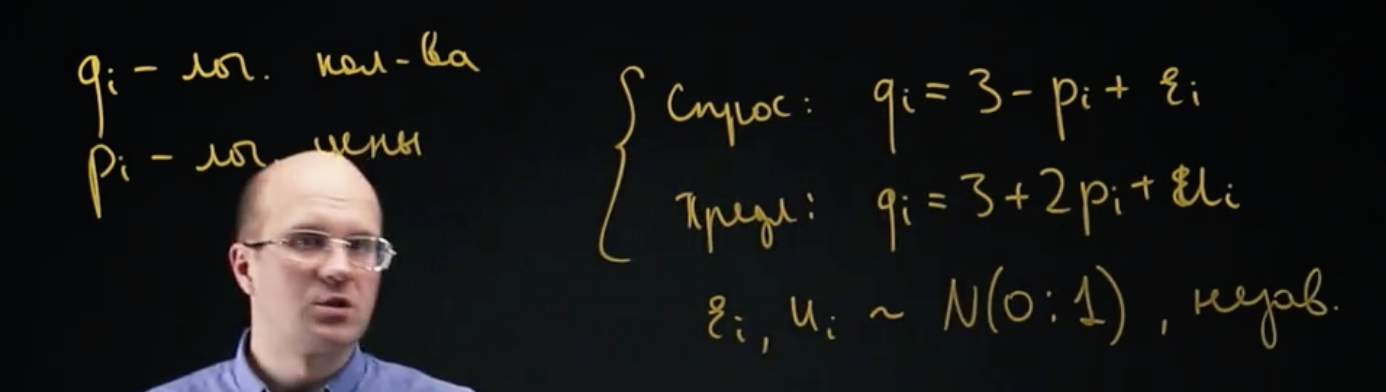 qᵢ - лог. кол-ва
pᵢ - лог. цены
Спрос: qᵢ = 3 - pᵢ + εᵢ
Предл: qᵢ = 3 + 2pᵢ + uᵢ
εᵢ, uᵢ ~ N(0;1), незав.